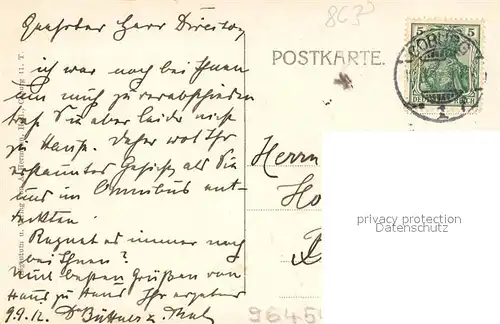 Geehrter Herr Director
ich war noch bei Ihnen
um mich zu verabschieden
traf Sie aber leider nicht
zu Hause. Daher wol Ihr
erstauntes Gesicht als Sie
uns im Omnibus ent-
deckten.
Regnet es immer noch
bei Ihnen?
Mit besten Grüßen von
Haus zu Haus Ihr ergebener
9.9.12. Dr Büttner
POSTKARTE.
5 5
COBURG
1
DEUTSCHES REICH
Herrn
privacy protection
Datenschutz